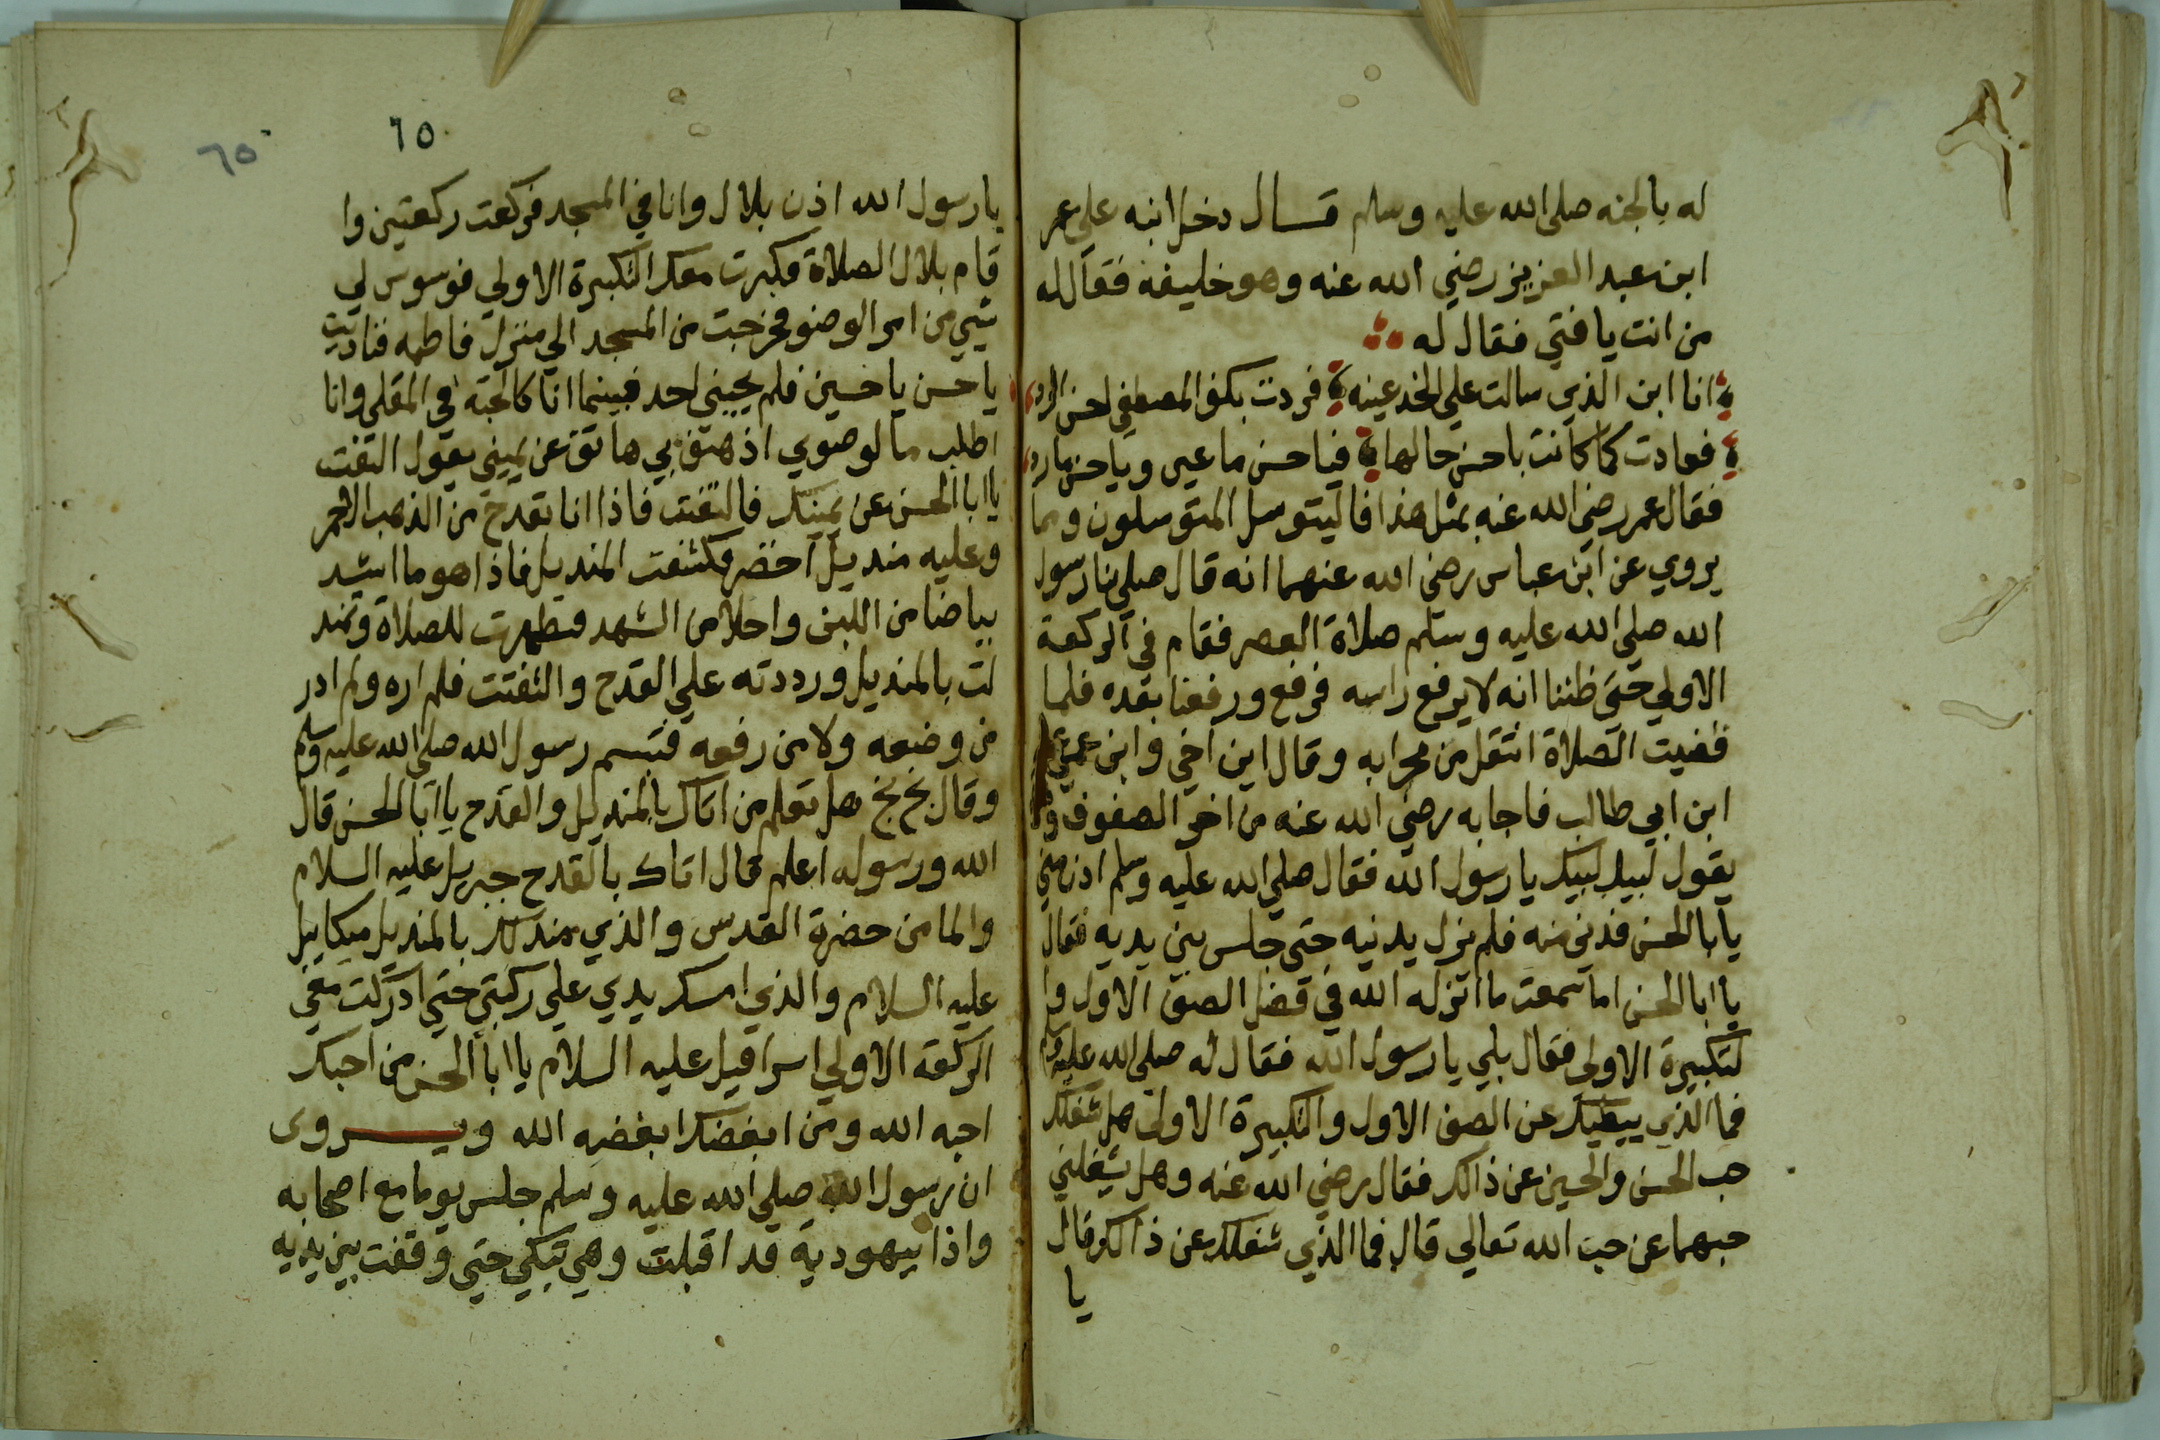 له بالجنه صلي الله عليه وسلم قال دخل ابنه علي عمر
ابن عبد العزيز رضي الله عنه وهو خليفة فقال له
من انت يا فتي فقال له
انا ابن الذي سالت علي الخد عينه فردت بكف المصطفي احسن الرد
فعادت كما كانت باحسن حالها فيا حسن ما عين ويا حسن ما رد
فقال عمر رضي الله عنه بمثل هذا فاليتوسل المتوسلون ومما
يروي عن ابن عباس رضي الله عنهما انه قال صلي بنا رسول
الله صلي الله عليه وسلم صلاة العصر فقام في الركعة
الاولي حتي ظننا انه لا يرفع راسه فرفع ورفعنا بعده فلما
قضيت الصلاة انتقل من محرابه وقال اين اخي وابن عمي علي
ابن ابي طالب فاجابه رضي الله عنه من اخر الصفوف وهو
يقول لبيك لبيك يا رسول الله فقال صلي الله عليه وسلم ادن مني
يا ابا الحسن فدني منه فلم يزل يدنيه حتي جلس بين يديه فقال
يا ابا الحسن اما سمعت ما انزله الله في فضل الصف الاول وا
لتكبيرة الاولي فقال بلي يا رسول الله فقال له صلي الله عليه وسلم
فما الذي يبطيك عن الصف الاول والتكبيرة الاولي هل شغلك
حب الحسن والحسين عن ذالك فقال رضي الله عنه وهل يشغلني
حبهما عن حب الله تعالي قال فما الذي شغلك عن ذالك قال
يا
٦٥
٦٥
يا رسول الله اذن بلال وانا في المسجد فركعت ركعتين وا
قام بلال الصلاة فكبرت معك التكبيرة الاولي فوسوس لي
شيي من امر الوضو فخرجت من المسجد الي منزل فاطمه فناديت
يا حسن يا حسين فلم يجيبني احد فبينما انا كالحبة في المقلي وانا
اطلب ما لوضوي اذ هتف بي هاتف عن يميني يقول التفت
يا ابا الحسن عن يمينك فالتفت فاذا انا بقدح من الذهب الاحمر
وعليه منديل اخضر فكشفت المنديل فاذا هو ما اشد
بياضا من اللبن واحلا من الشهد فتطهرت للصلاة وتمند
لت بالمنديل ورددته علي القدح والتفتت فلم اره ولم ادر
من وضعه ولا من رفعه فتبسم رسول الله صلي الله عليه وسلم
وقال بخ بخ هل تعلم من اتاك بالمنديل والقدح يا ابا الحسن قال
الله ورسوله اعلم قال اتاك بالقدح جبريل عليه السلام
والما من حضرة القدس والذي مندلك بالمنديل ميكاييل
عليه السلام والذي امسك يدي علي ركبتي حتي ادركت معي
الركعة الاولي اسرافيل عليه السلام يا ابا الحسن من احبك
احبه الله ومن ابغضك ابغضه الله ويروى
ان رسول الله صلي الله عليه وسلم جلس يوما مع اصحابه
واذا بيهودية قد اقبلت وهي تبكي حتي وقفت بين يديه